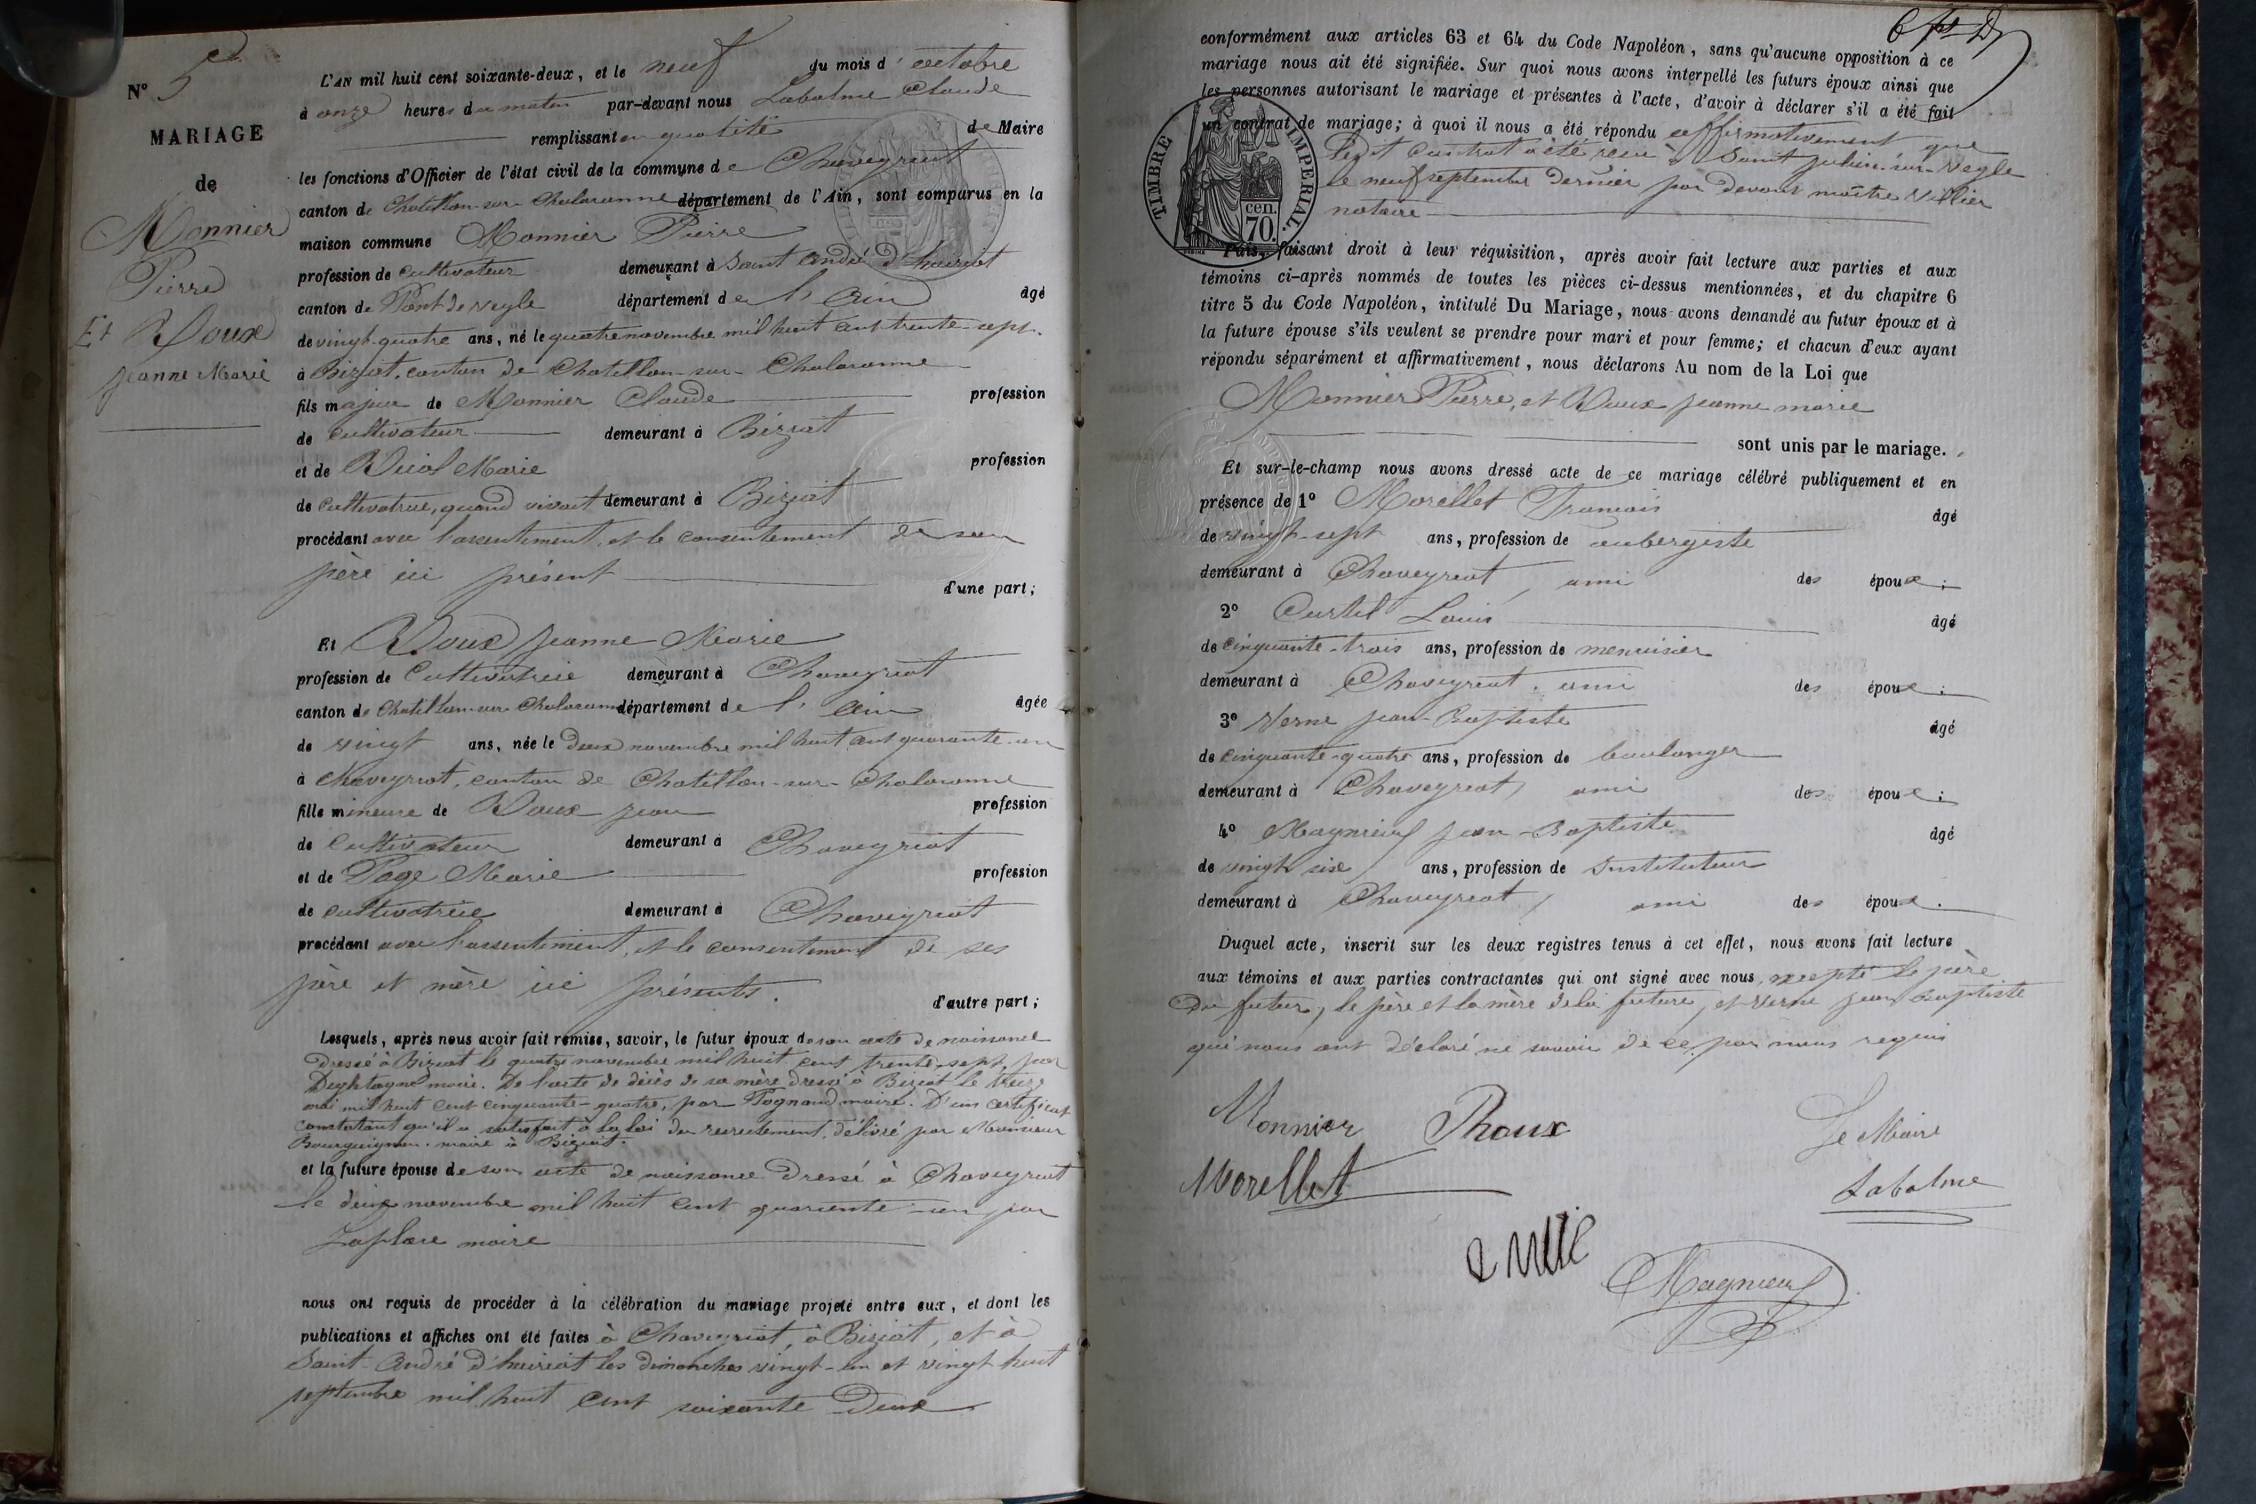 N° 5
MARIAGE
de
Monnier
Pierre
Et Roux
Jeanne Marie
L'AN mil huit cent soixante-deux, et le neuf du mois d'octobre
à onze heures du matin par-devant nous Labalme Claude
remplissant en qualité de Maire
les fonctions d'Officier de l'état civil de la commune de Chaveyriat
canton de Chatillon-sur-Chalaronne département de l'Ain, sont comparus en la
maison commune Monnier Pierre
profession de cultivateur demeurant à Saint André d'huiriat
canton de Pont de Veyle département de l'Ain âgé
de vingt-quatre ans, né le quatre novembre mil huit cent trente-sept
à Biziat, canton de Chatillon-sur-Chalaronne
fils majeur de Monnier Claude profession
de cultivateur demeurant à Biziat
et de Marie profession
de cultivatrice, quand vivait demeurant à Biziat
procédant avec l'assentiment, et le consentement de son
père ici présent
d'une part;
Et Roux Jeanne Marie
profession de Cultivatrice demeurant à Chaveyriat
canton de Chatillon-sur-Chalaronne département de l'Ain âgée
de vingt ans, née le deux novembre mil huit cent quarante-un
à Chaveyriat, canton de Chatillon-sur-Chalaronne
fille mineure de Roux Jean profession
de Cultivateur demeurant à Chaveyriat
et de Page Marie profession
de cultivatrice demeurant à Chaveyriat
procédant avec l'assentiment, et le consentement de ses
père et mère ici présents.
d'autre part;
Lesquels, après nous avoir fait remise, savoir, le futur époux de son acte de naissance
Dressé à Biziat le quatre novembre mil huit cent trente-sept, par
maire. De l'acte de décès de sa mère dressé à Biziat le treize
mai mil huit cent cinquante-quatre, par Tognard maire. D'un certificat
constatant qu'il a satisfait à la loi du recrutement, délivré par Monsieur
Bourguignon, maire à Biziat.
et la future épouse de son acte de naissance Dressé à Chaveyriat
le deux novembre mil huit cent quarante-un par
maire
nous ont requis de procéder à la célébration du mariage projeté entre eux, et dont les
publications et affiches ont été faites à Chaveyriat, à Biziat, et à
Saint-André d'huiriat les dimanches vingt-un et vingt-huit
septembre mil huit cent soixante-Deux
conformément aux articles 63 et 64 du Code Napoléon, sans qu'aucune opposition à ce
mariage nous ait été signifiée. Sur quoi nous avons interpellé les futurs époux ainsi que
les personnes autorisant le mariage et présentes à l'acte, d'avoir à déclarer s'il a été fait
un contrat de mariage; à quoi il nous a été répondu affirmativement que
ledit contrat a été reçu à Saint Julien-sur-Veyle
le neuf septembre Dernier par devant maître Villier
notaire
TIMBRE IMPERIAL.
cen.
70.
Puis, faisant droit à leur réquisition, après avoir fait lecture aux parties et aux
témoins ci-après nommés de toutes les pièces ci-dessus mentionnées, et du chapitre 6
titre 5 du Code Napoléon, intitulé Du Mariage, nous avons demandé au futur époux et à
la future épouse s'ils veulent se prendre pour mari et pour femme; et chacun d'eux ayant
répondu séparément et affirmativement, nous déclarons Au nom de la Loi que
Monnier Pierre, et Roux Jeanne marie
sont unis par le mariage.
Et sur-le-champ nous avons dressé acte de ce mariage célébré publiquement et en
présence de 1° Morellet François
âgé
de vingt-sept ans, profession de aubergiste
demeurant à Chaveyriat, ami des époux;
2° Curtil Louis
âgé
de cinquante-trois ans, profession de menuisier
demeurant à Chaveyriat, ami des époux;
3° Verne Jean-Baptiste
âgé
de cinquante-quatre ans, profession de boulanger
demeurant à Chaveyriat, ami des époux;
4° Magnieul Jean-Baptiste
âgé
de vingt six ans, profession de Instituteur
demeurant à Chaveyriat, ami des époux.
Duquel acte, inscrit sur les deux registres tenus à cet effet, nous avons fait lecture
aux témoins et aux parties contractantes qui ont signé avec nous, excepté le père
Du futur, le père et la mère de la future, et Verne Jean Baptiste
qui nous ont déclaré ne savoir de ce par nous requis
Monnier Roux Le Maire
Morellet Labalme
Magnieul